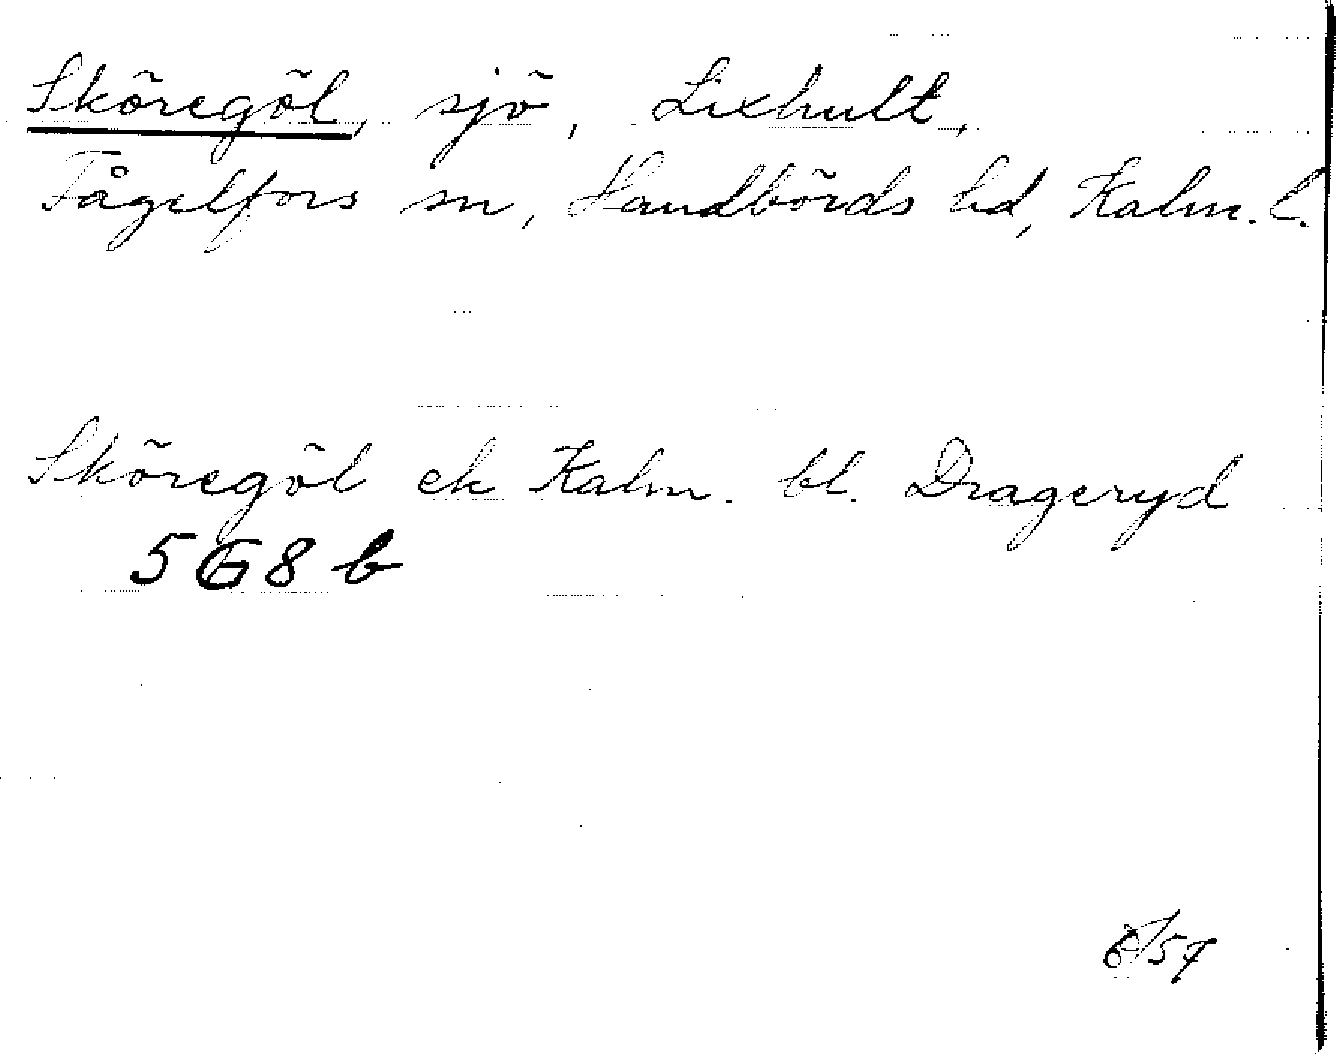 Sköregöl, sjö, Lixhult,
Fågelfors sn, Handbörds hd, Kalm. l.
Sköregöl ek Kalm. bl. Drageryd
5G8b
6/57